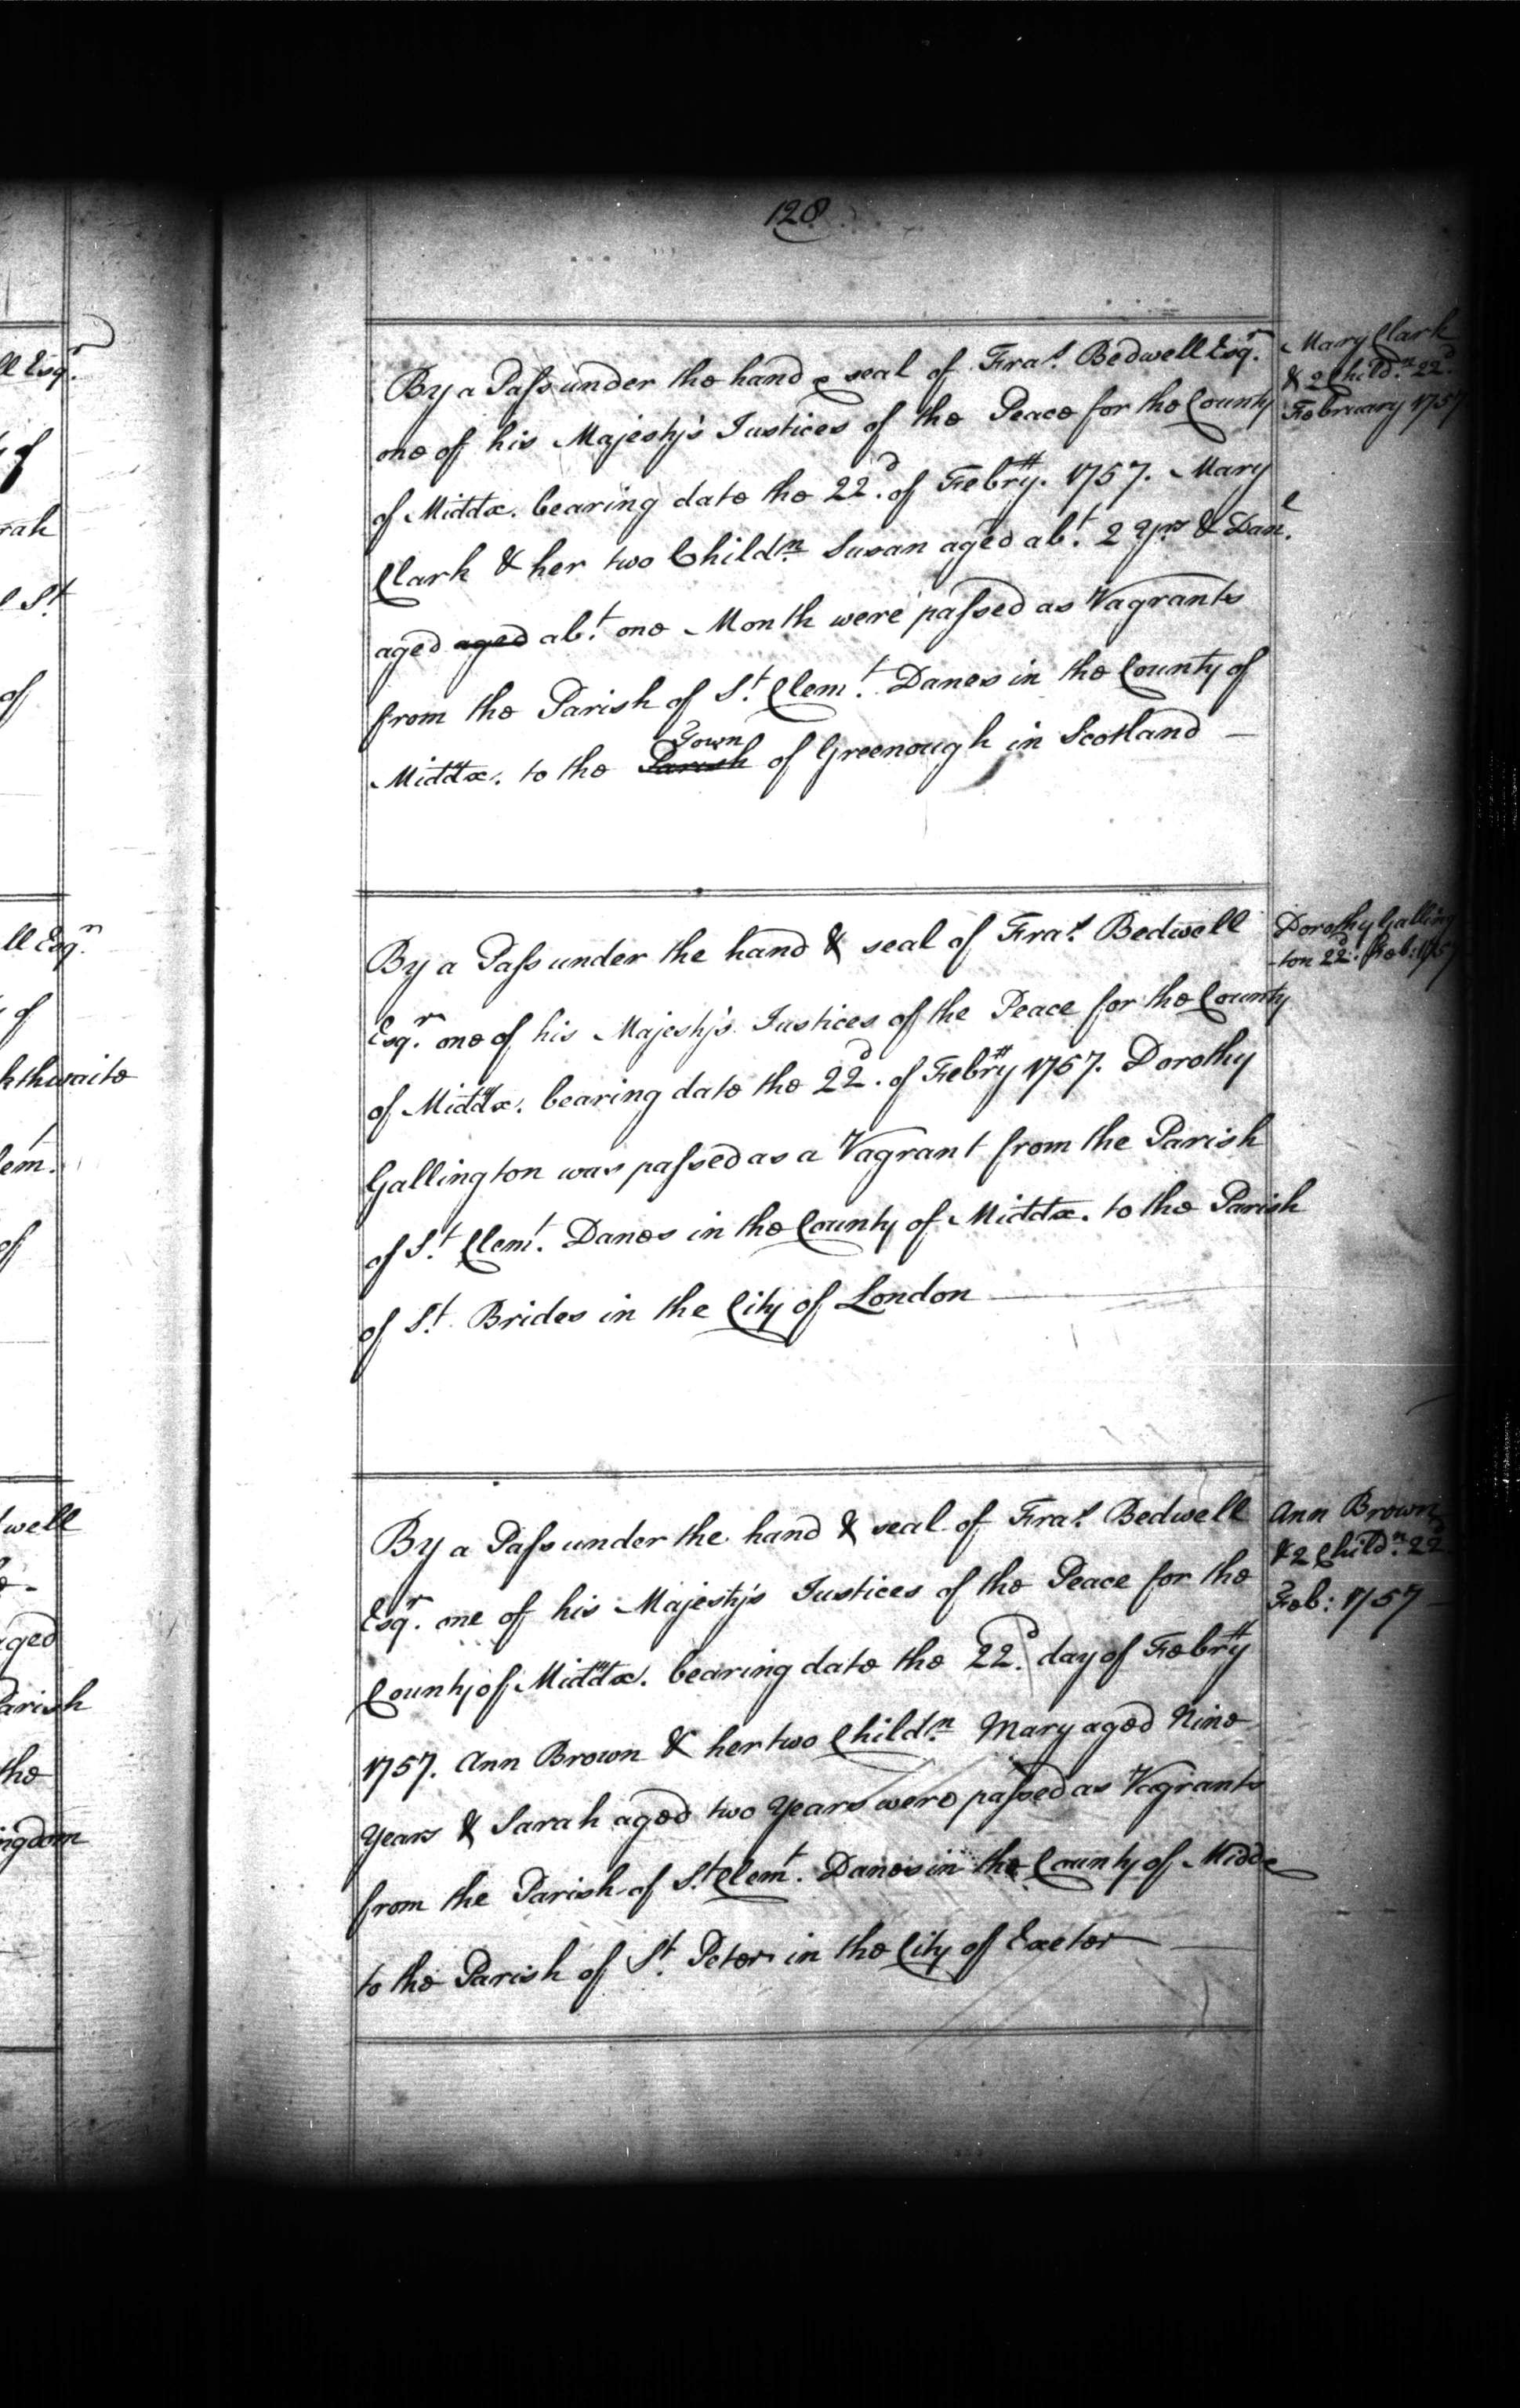 128
By a Pass under the hand & seal of Fra.s Bedwell Esq.r
one of his Majesty's Justices of the Peace for the County
of Middx. bearing date the 22.d of Febry. 1757. Mary
Clark & her two Child.n Susan aged ab.t 2 yrs & Dan.l
aged aged ab.t one Month were passed as Vagrants
from the Parish of S.t Clem.t Danes in the County of
Town
Middx. to the Parish of Greenough in Scotland —
Mary Clark
& 2 Child.n 22.d
February 1757
By a Pass under the hand & seal of Fra.s Bedwell
Esq.r one of his Majesty's Justices of the Peace for the County
of Middx. bearing date the 22.d of Febry 1757. Dorothy
Gallington was passed as a Vagrant from the Parish
of S.t Clem.t Danes in the County of Middx. to the Parish
of S.t Brides in the City of London —
Dorothy Galling
-ton 22.d Feb: 1757
By a Pass under the hand & seal of Fra.s Bedwell
Esq.r one of his Majesty's Justices of the Peace for the
County of Middx. bearing date the 22.d day of Febry
1757. Ann Brown & her two Child.n Mary aged Nine
Years & Sarah aged two Years were passed as Vagrants
from the Parish of S.t Clem.t Danes in the County of Middx
to the Parish of S.t Peter in the City of Exeter —
Ann Brown
& 2 Child.n 22.d
Feb: 1757 —
ll Esq.r
of
rah
S.t
of
ll Esq.r
of
hthwaite
lem.t
of
dwell
aged
Parish
the
ingdom